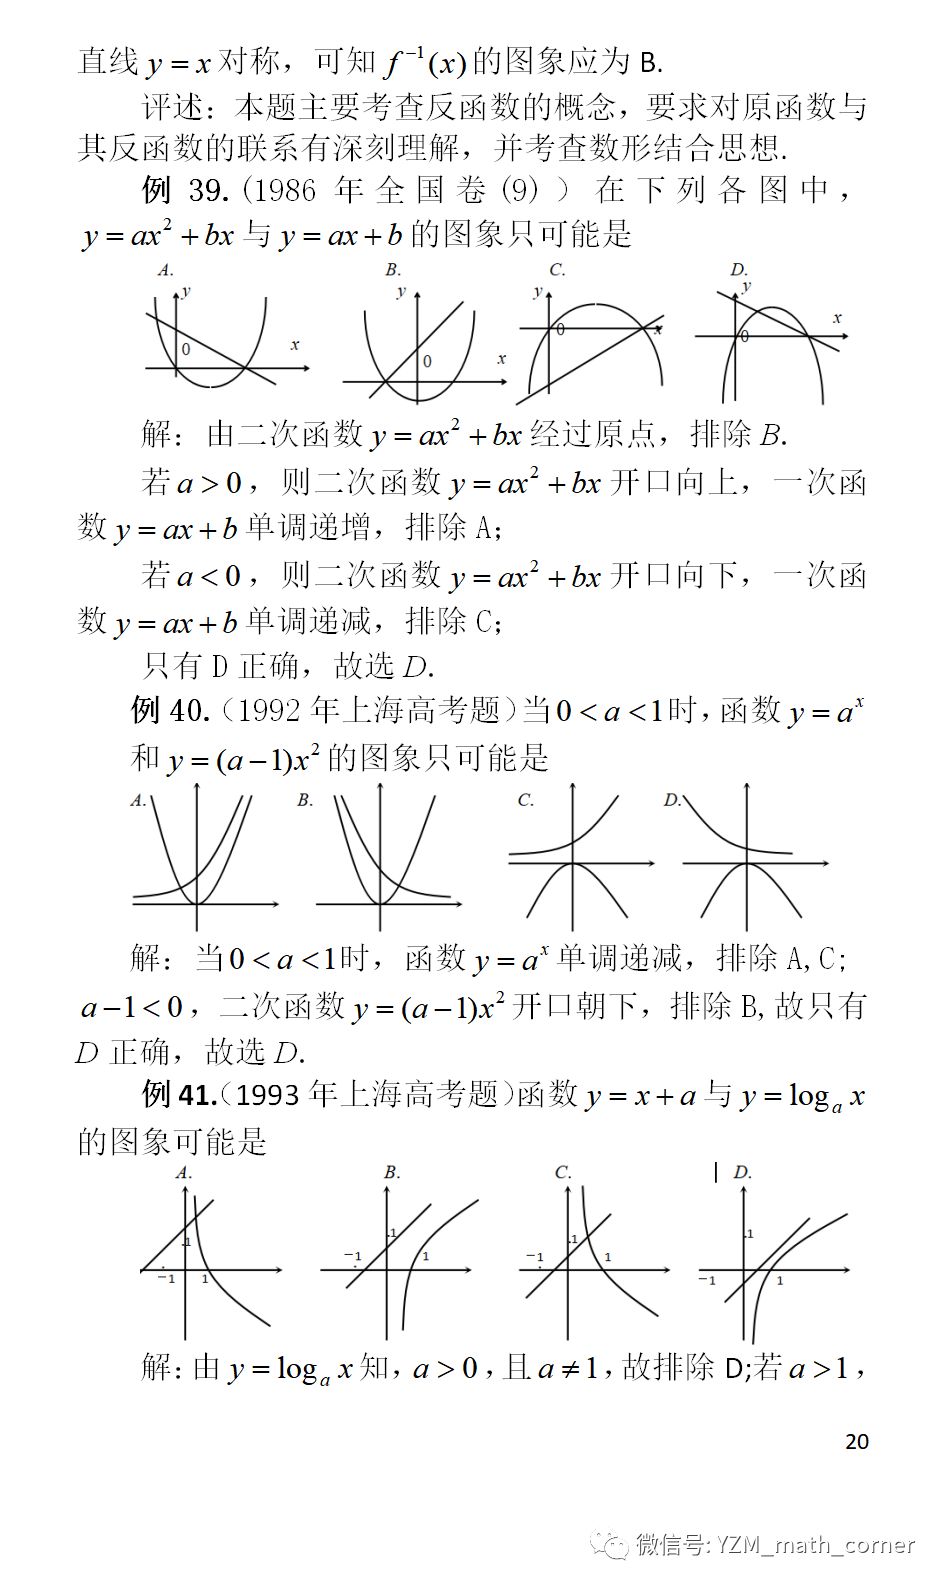 直线 y = x 对称，可知 f⁻¹(x) 的图象应为 B.
评述：本题主要考查反函数的概念，要求对原函数与
其反函数的联系有深刻理解，并考查数形结合思想.
例 39.(1986 年全国卷(9)）在下列各图中，
y = ax² + bx 与 y = ax + b 的图象只可能是
A. B. C. D.
y y y y
0 x 0 x 0 x 0 x
解：由二次函数 y = ax² + bx 经过原点，排除 B.
若 a > 0，则二次函数 y = ax² + bx 开口向上，一次函
数 y = ax + b 单调递增，排除 A；
若 a < 0，则二次函数 y = ax² + bx 开口向下，一次函
数 y = ax + b 单调递减，排除 C；
只有 D 正确，故选 D.
例 40.（1992 年上海高考题）当 0 < a < 1 时，函数 y = aˣ
和 y = (a − 1)x² 的图象只可能是
A. B. C. D.
解：当 0 < a < 1 时，函数 y = aˣ 单调递减，排除 A,C;
a − 1 < 0，二次函数 y = (a − 1)x² 开口朝下，排除 B,故只有
D 正确，故选 D.
例 41.（1993 年上海高考题）函数 y = x + a 与 y = logₐ x
的图象可能是
A. B. C. D.
1 1 1 1
−1 1 −1 1 −1 1 −1 1
解：由 y = logₐ x 知，a > 0，且 a ≠ 1，故排除 D;若 a > 1，
20
微信号: YZM_math_corner